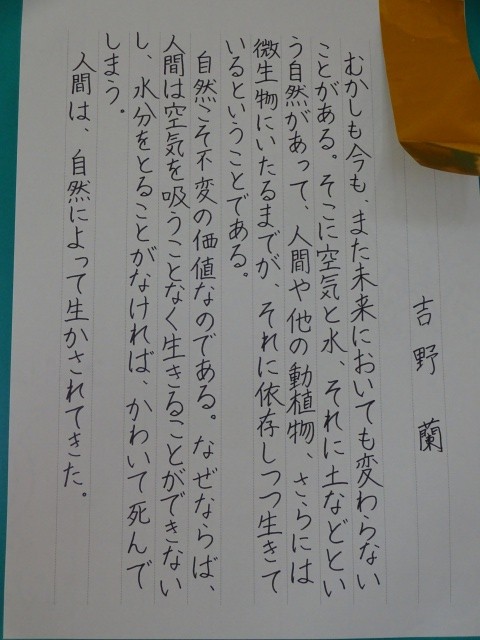 吉野 蘭
むかしも今も、また未来においても変わらない
ことがある。そこに空気と水、それに土などとい
う自然があって、人間や他の動植物、さらには
微生物にいたるまでが、それに依存しつつ生きて
いるということである。
自然こそ不変の価値なのである。なぜならば、
人間は空気を吸うことなく生きることができない
し、水分をとることがなければ、かわいて死んで
しまう。
人間は、自然によって生かされてきた。